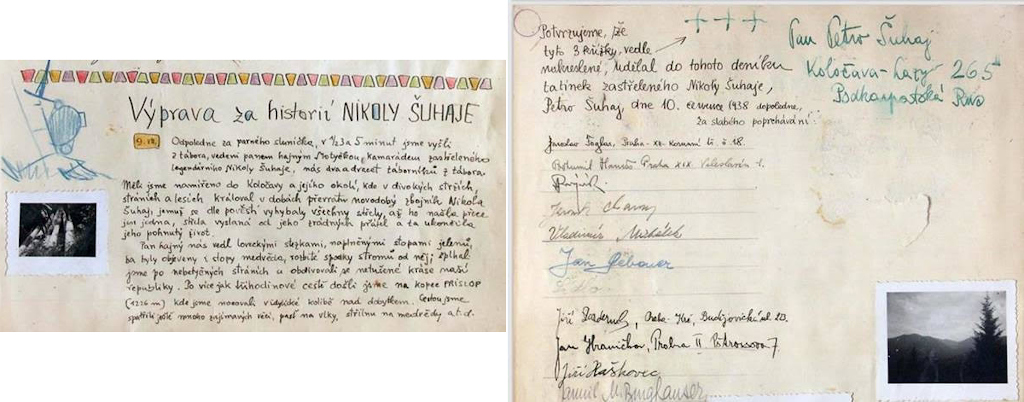 Výprava za historií NIKOLY ŠUHAJE
9.VII.
Odpoledne za parného sluníčka, v ½3 a 5 minut jsme vyšli
z tábora, vedeni panem hajným Motyčkou, kamarádem zastřeleného
legendárního Nikoly Šuhaje, nás dvaadvacet táborníků z tábora.
Měli jsme namířeno do Koločavy a jejího okolí, kde v divokých stržích,
stráních a lesích kraloval v dobách převratu novodobý zbojník Nikola
Šuhaj, jemuž se dle pověsti vyhýbaly všechny střely, až ho našla přece
jen jedna, střela vyslaná od jeho zrádných přátel a ta ukončila
jeho pohnutý život.
Pan hajný nás vedl loveckými stezkami, naplněnými stopami jelenů,
ba byly objeveny i stopy medvěda, rozbité spodky stromů od něj; šplhali
jsme po nebetyčných stráních a obdivovali se netušené kráse naší
republiky. Po více jak tříhodinové cestě došli jsme na kopec PRISLOP
kde jsme nocovali v kolibě nad dobytkem. Cestou jsme
spatřili ještě mnoho zajímavých věcí, past na vlky, střílnu na medvědy a.t.d.
Potvrzujeme, že
tyto 3 křížky, vedle
nakreslené, udělal do tohoto deníku
tatínek zastřeleného Nikoly Šuhaje,
Petro Šuhaj, dne 10. července 1938 dopoledne,
za slabého poprchávání:
+ + +
Pan Petro Šuhaj
Koločava-Lazy 265
Podkarpatská Rus
Jaroslav Foglar, Praha-XII. Korunní tř. č. 98.
Bohumil Praha XIX. Veleslavín
Vladimír
Jan
Jiří Praha-Krč, Budějovická ul. 20.
Jan Hraničkov, Praha II Petrossova 7.
Jiří Haškovec